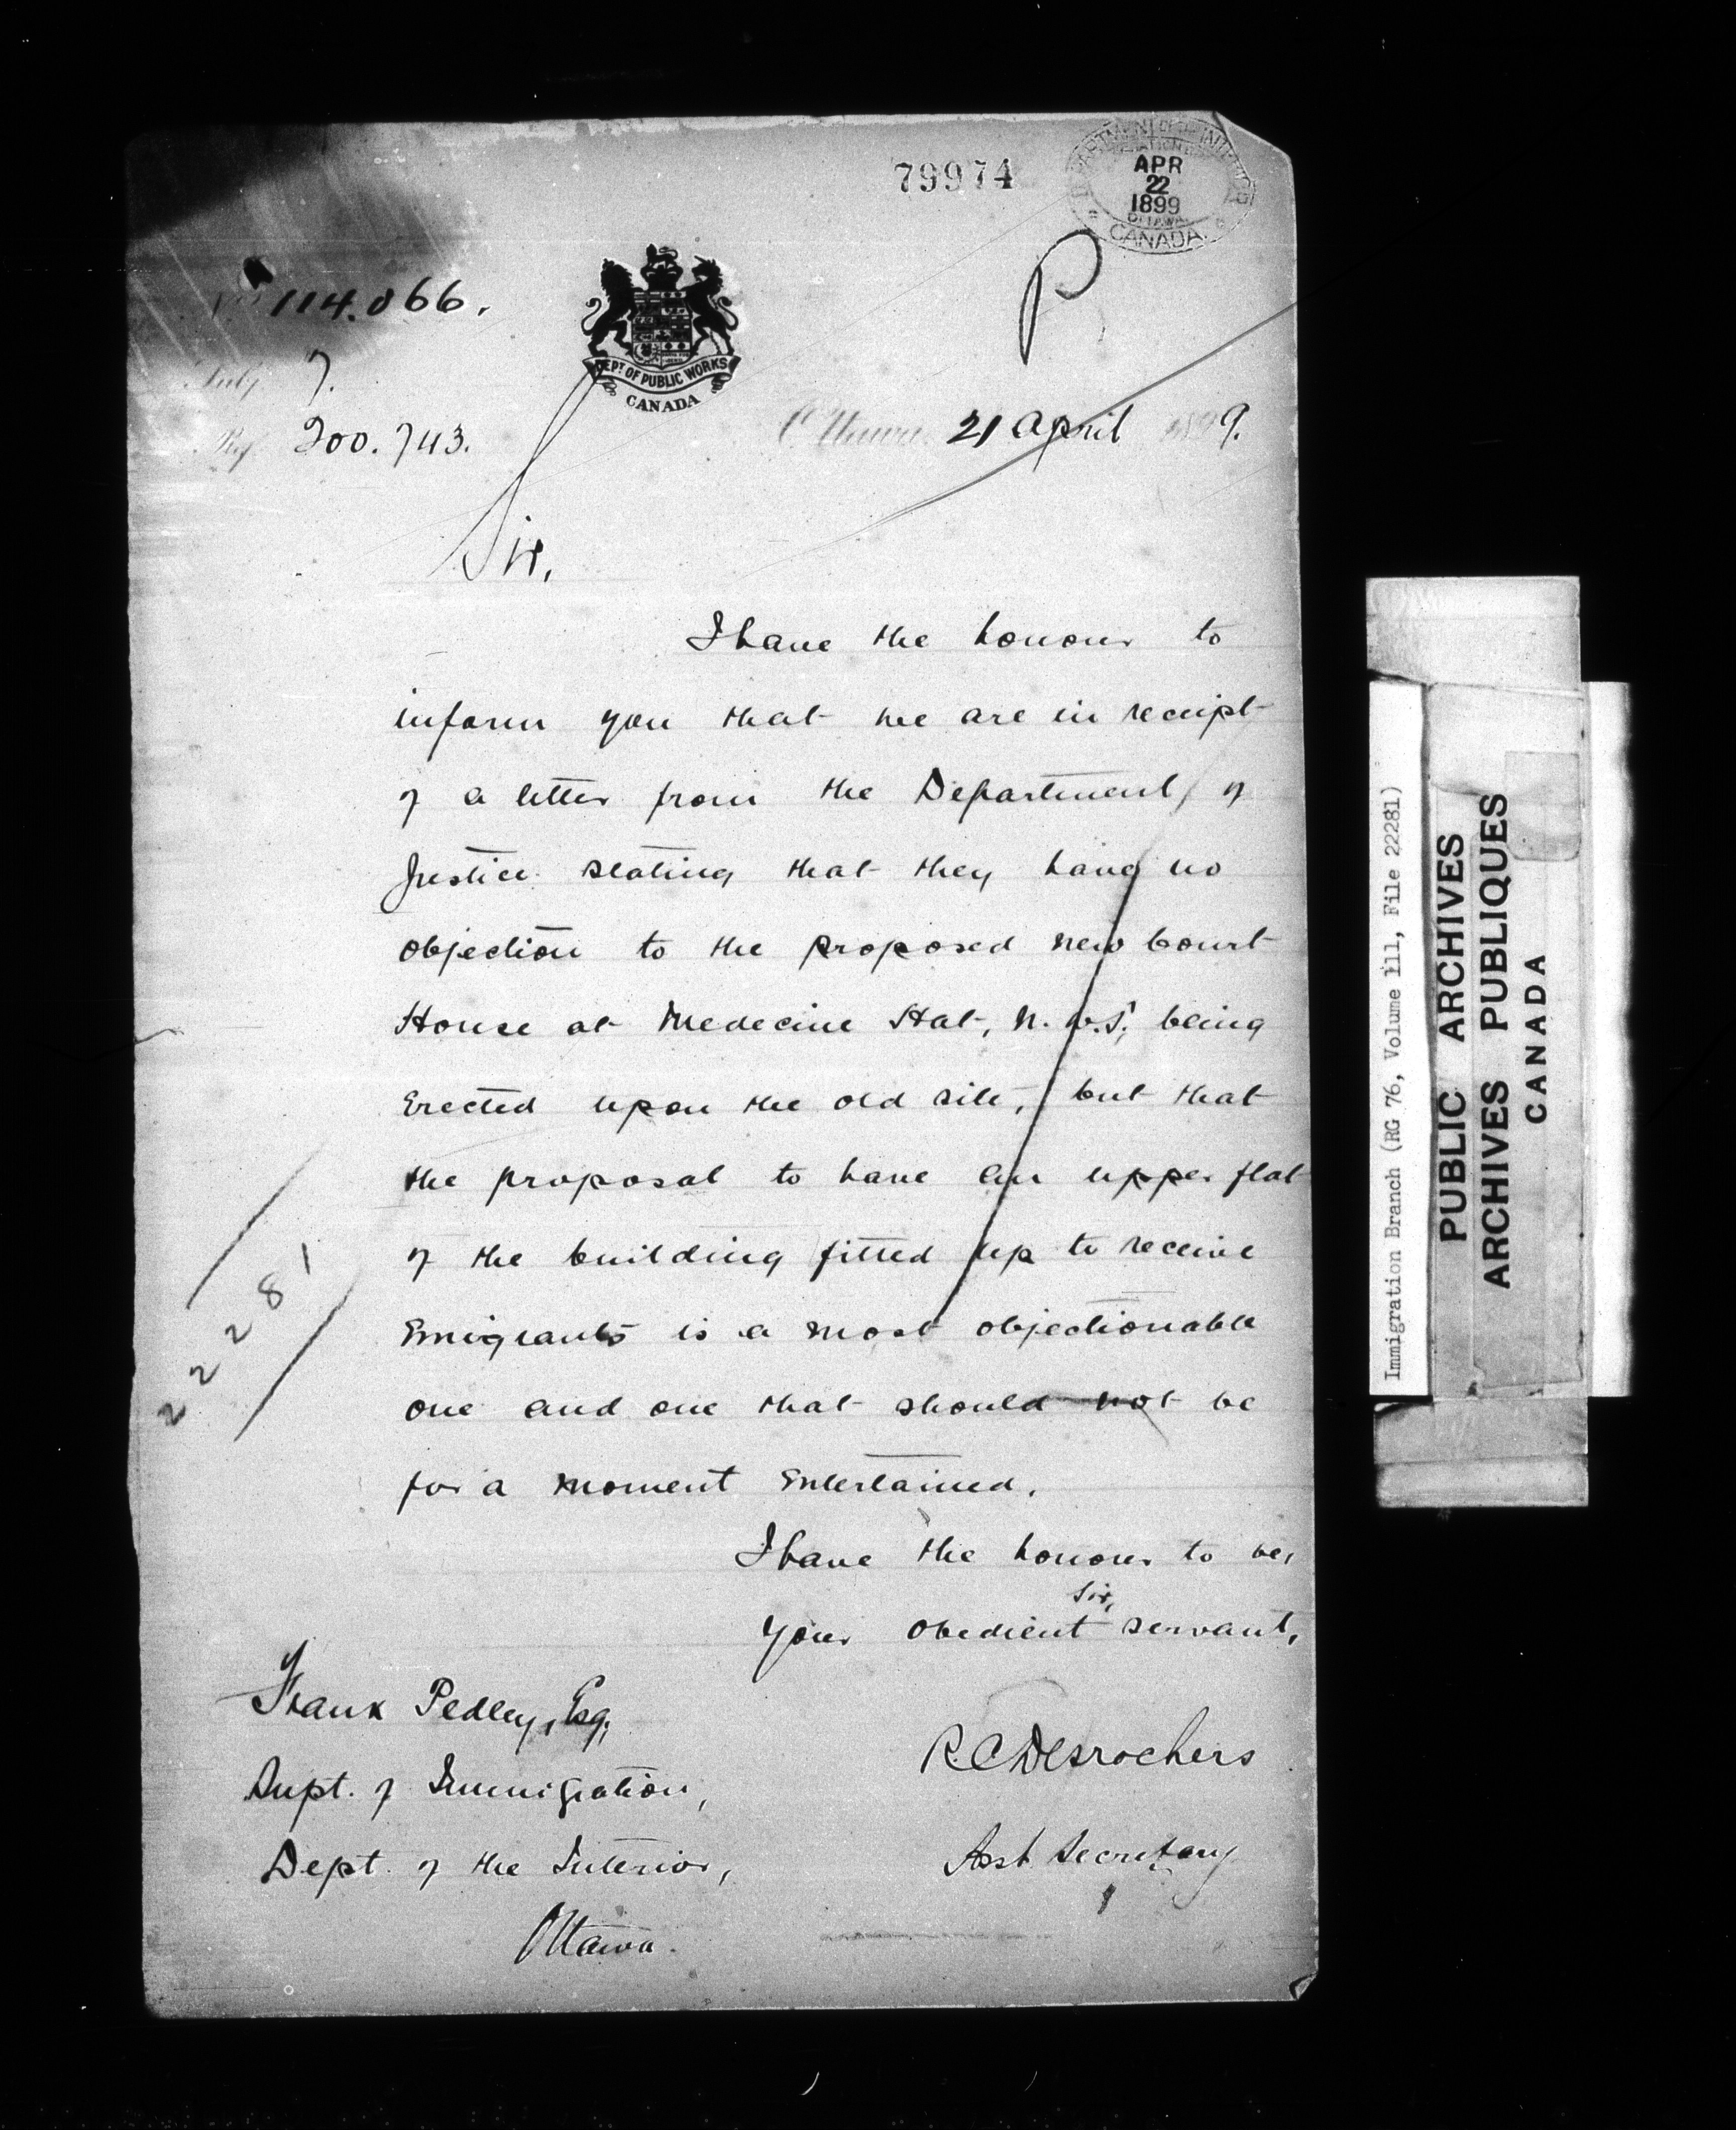 79974
DEPARTMENT OF THE INTERIOR
APR
22
1899
OTTAWA
CANADA
No 114.066.
P
DEPT OF PUBLIC WORKS
CANADA
Subj. 7.
Ref. 200.743.
Ottawa 21 April 1899.
Sir,
I have the honour to
inform you that we are in receipt
of a letter from the Department of
Justice stating that they have no
objection to the proposed new Court
House at Medecine Hat, N.W.T., being
Erected upon the old site, but that
the proposal to have an upper flat
of the building fitted up to receive
Emigrants is a most objectionable
one and one that should not be
for a moment Entertained.
22281
I have the honour to be,
Sir,
Your obedient servant,
Frank Pedley, Esq.,
Supt. of Immigration,
Dept. of the Interior,
Ottawa.
R.C Desrochers
Asst. Secretary
Immigration Branch (RG 76, Volume 111, File 22281)
PUBLIC ARCHIVES
ARCHIVES PUBLIQUES
CANADA